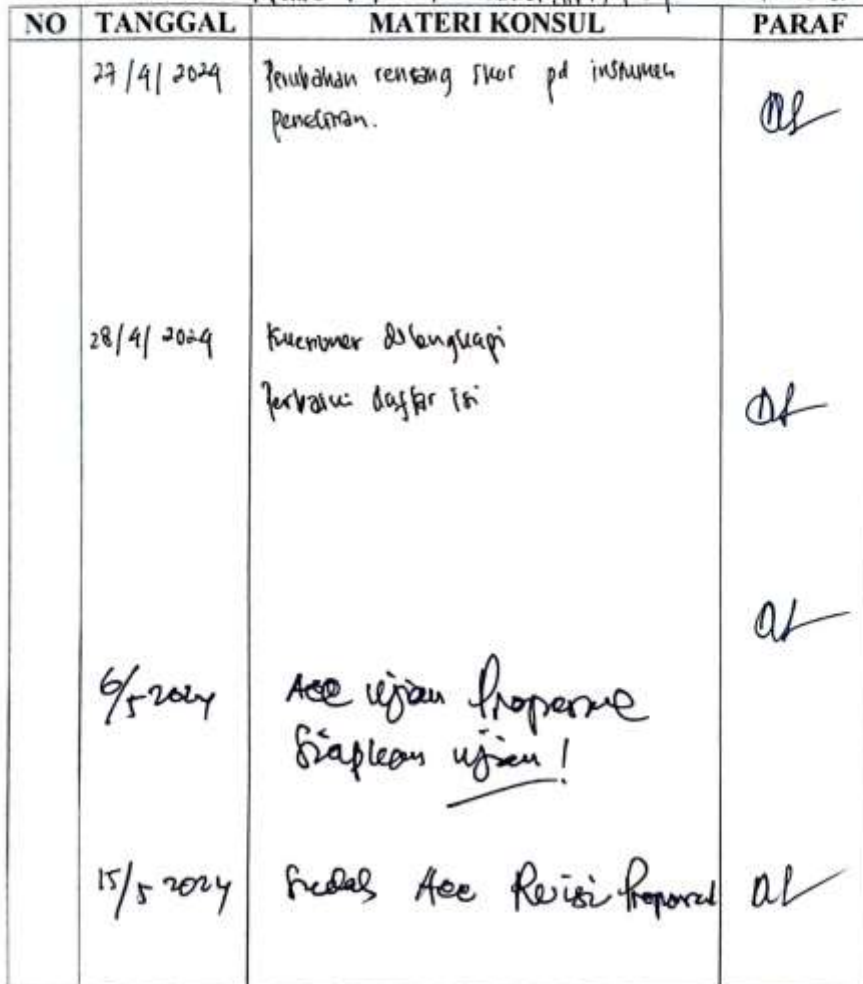 NO TANGGAL MATERI KONSUL PARAF
27/4/2024 Perubahan rentang skor pd instrumen
penelitian.
28/4/2024 Kuesioner dilengkapi
Perbaiki daftar isi
6/5 2024 Acc ujian Proposal
Siapkan ujian !
15/5 2024 Sudah Acc Revisi Proposal